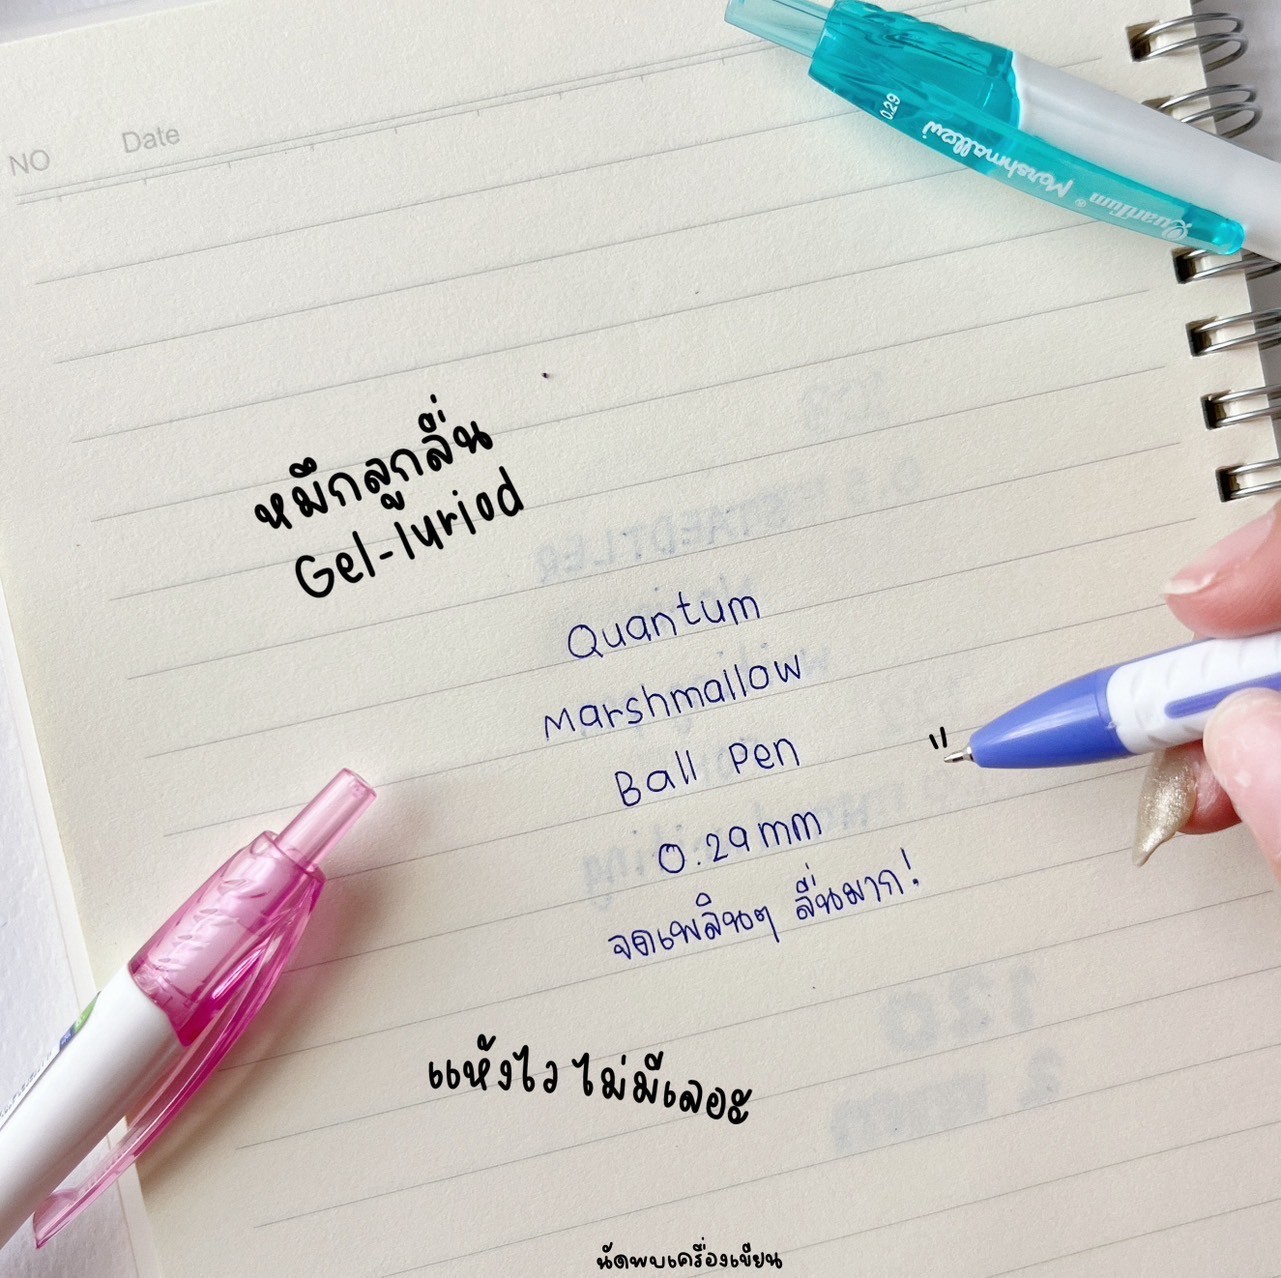 0.29
Quantum® Marshmallow
NO Date
หมึกลูกลื่น
Gel-luriod
Quantum
Marshmallow
Ball Pen
0.29mm
จดเพลินๆ ลื่นมาก!
แห้งไว ไม่มีเลอะ
นัดพบเครื่องเขียน